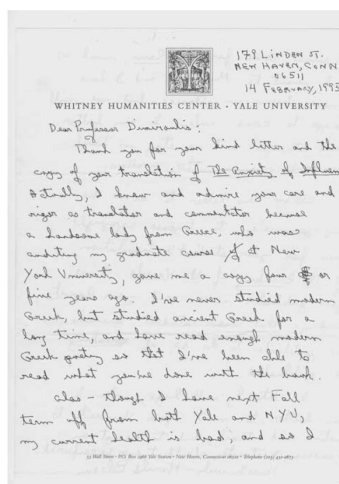 179 LINDEN ST.
NEW HAVEN, CONN
06511
14 FEBRUARY, 1995
WHITNEY HUMANITIES CENTER · YALE UNIVERSITY
Dear Professor
Thank you for your kind letter and the
copy of your translation of The Anxiety of Influen
Actually, I knew and admire your care and
rigor as translator and commentator because
a handsome lady from Greece, who was
auditing my graduate course at New
York University, gave me a copy four or
five years ago. I've never studied modern
Greek, but studied ancient Greek for a
long time, and have read enough modern
Greek poetry so that I've been able to
read what you've done with the book.
Alas — though I have next Fall
term off from both Yale and NYU,
my current health is bad; and as I
53 Wall Street · P.O. Box 2968 Yale Station · New Haven, Connecticut 06520 · Telephone (203)